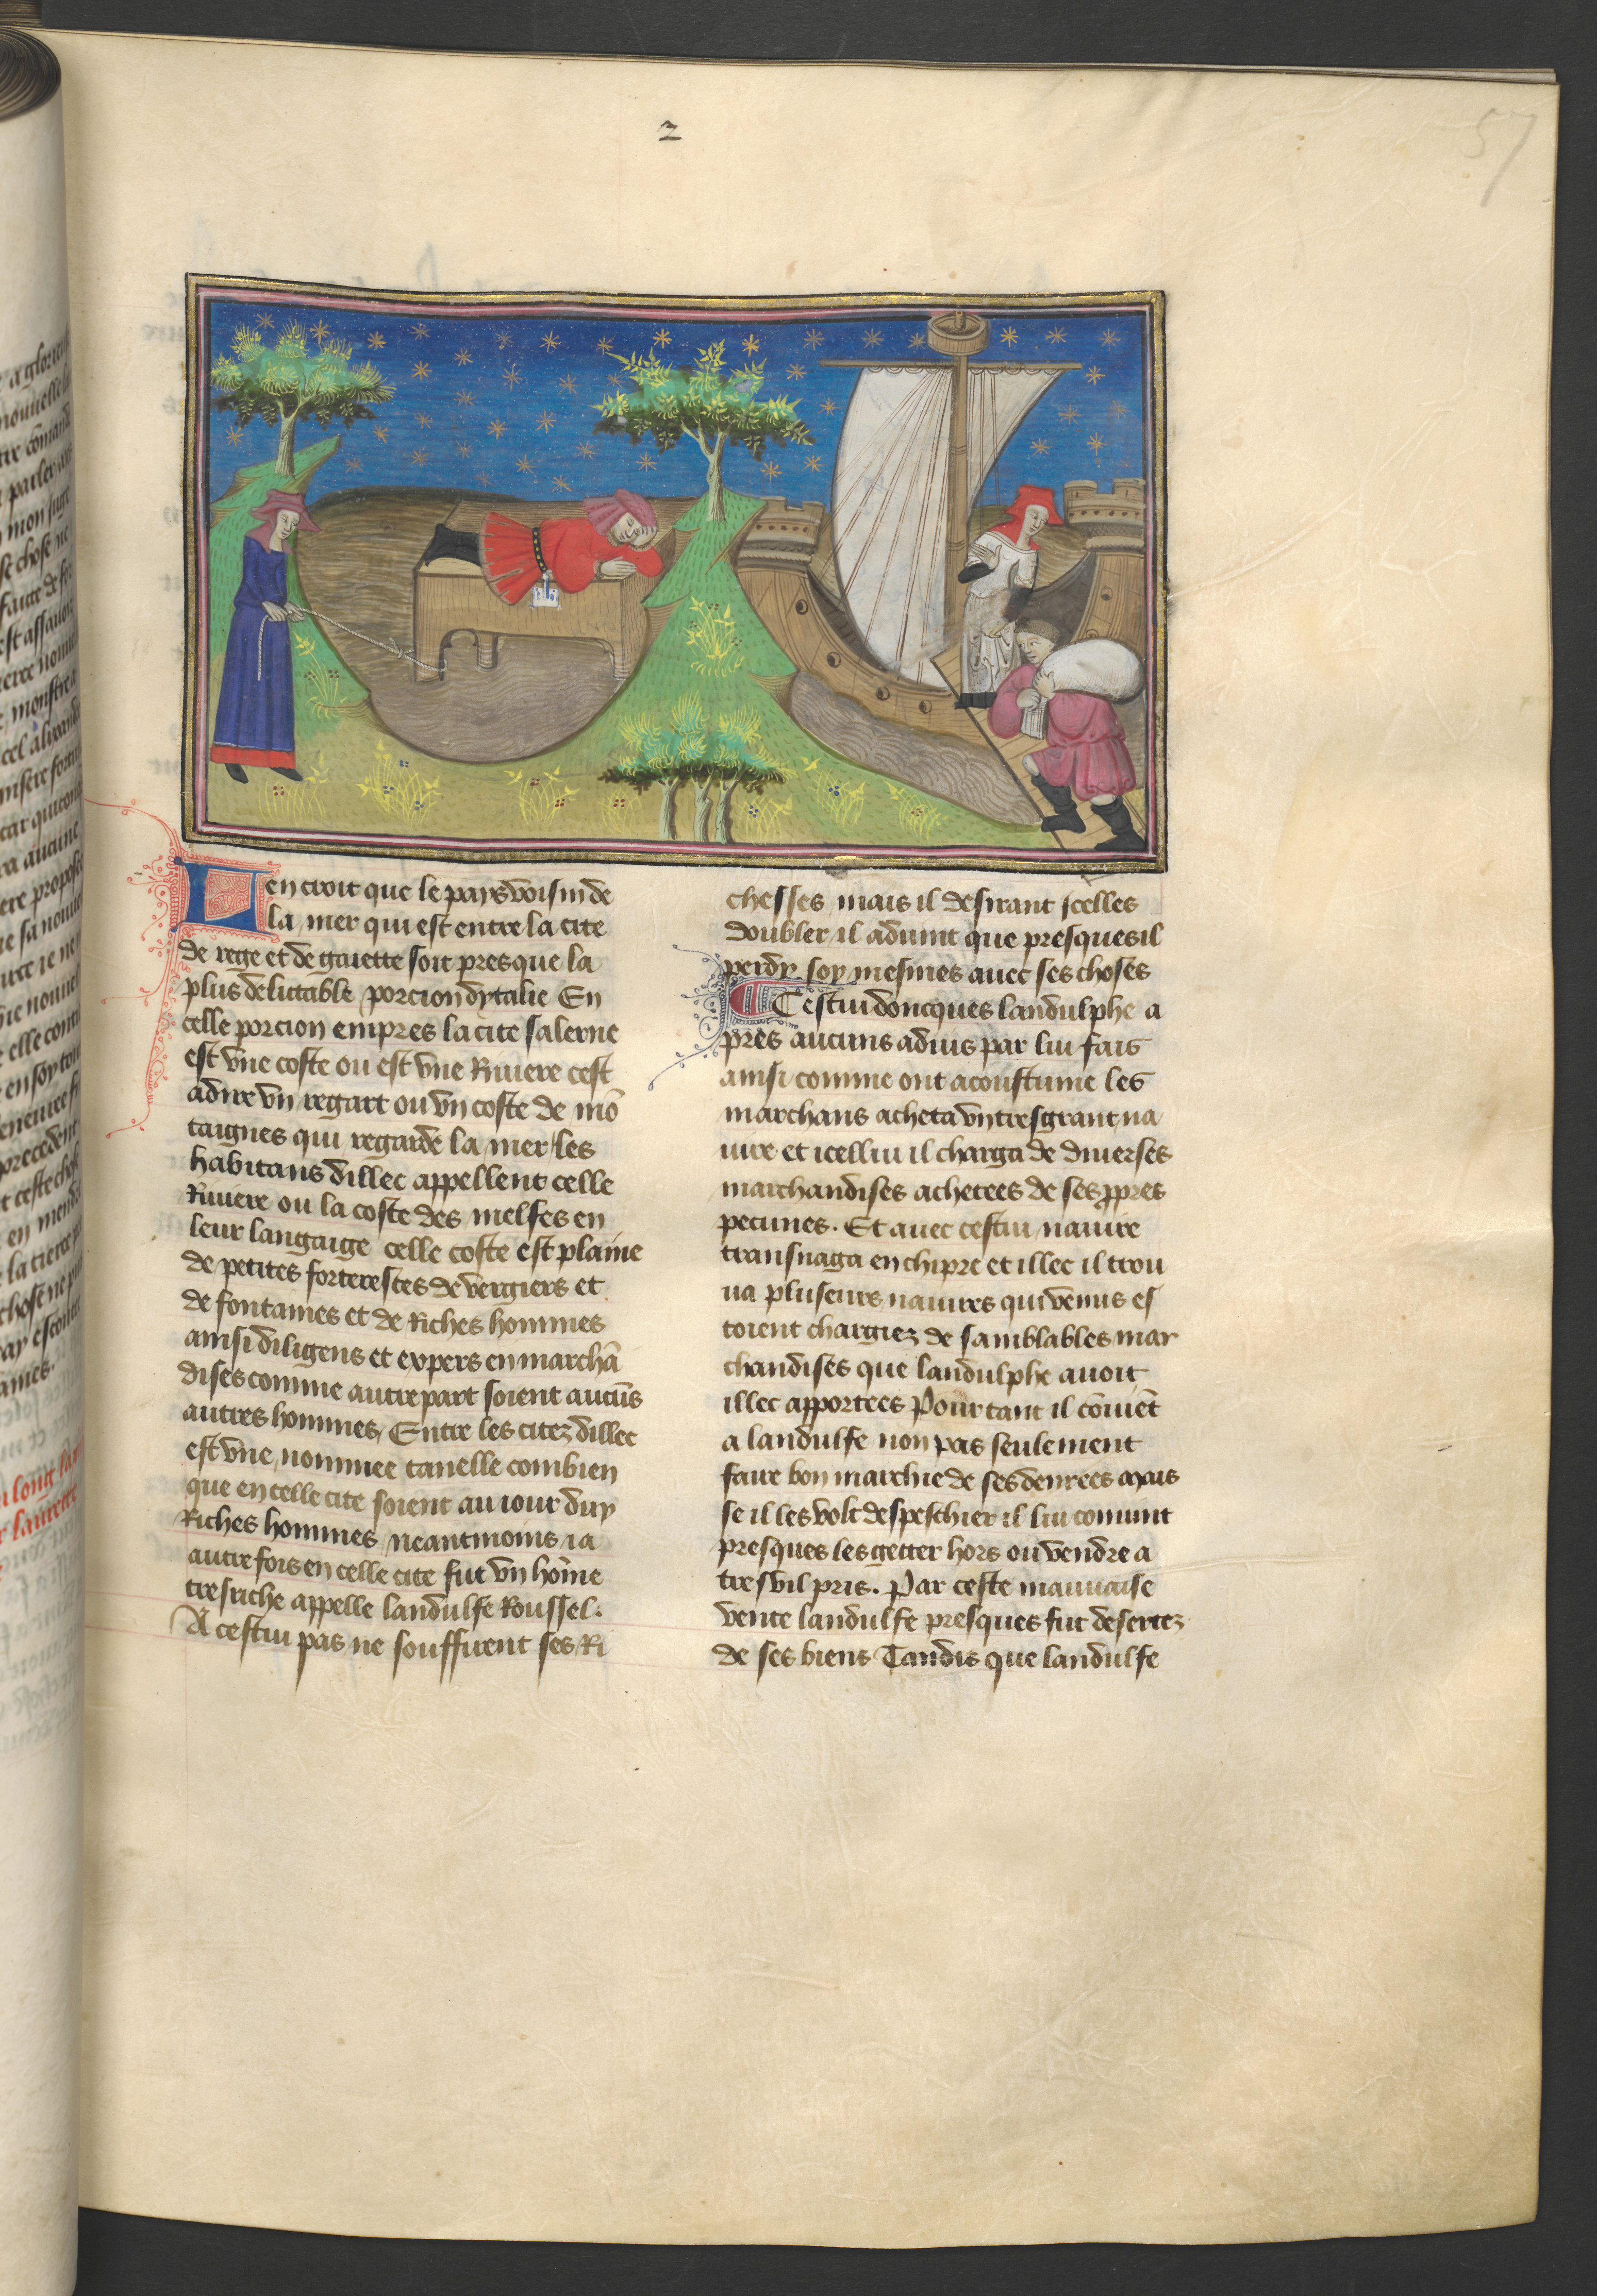 2
57
Len croit que le pays voisin de
la mer qui est entre la cite
de rege et de gaiette soit presque la
plus delictable porcion dytalie En
celle porcion empres la cite salerne
est vne coste ou est vne Riuiere cest
adire vn regart ou vn coste de mō
taignes qui regarde la mer les
habitans dillec appellent celle
Riuiere ou la coste des melfes en
leur langaige celle coste est plaine
de petites forterestes de vergiers et
de fontaines et de Riches hommes
ainsi diligens et expers en marchā
dises comme autre part soient aucūs
autres hommes Entre les citez dillec
est vne nommee rauelle combien
que en celle cite soient au iour duy
Riches hommes neantmoins ia
autre fois en celle cite fut vn hōme
tresriche appelle landulfe Roussel.
A cestui pas ne souffirent ses Ri
chesses mais il desirant icelles
doubler il aduint que presques il
perdy soy mesmes auec ses choses
Cestui doncques landulphe a
pres aucuns aduis par lui fais
ainsi comme ont acoustume les
marchans acheta vn tresgrant na
uire et icellui il charga de diuerses
marchandises achetees de ses ꝓpres
pecunes. Et auec cestui nauire
transnaga en chipre et illec il trou
ua pluseurs nauires qui venus es
toient chargiez de samblables mar
chandises que landulphe auoit
illec apportees Pour tant il cōuiēt
a landulfe non pas seulement
faire bon marchie de ses denrees mais
se il les volt despeschier il lui conuint
presques les getter hors ou vendre a
tresvil pris. Par ceste mauuaise
vente landulfe presques fut desertez
de ses biens Tandis que landulfe